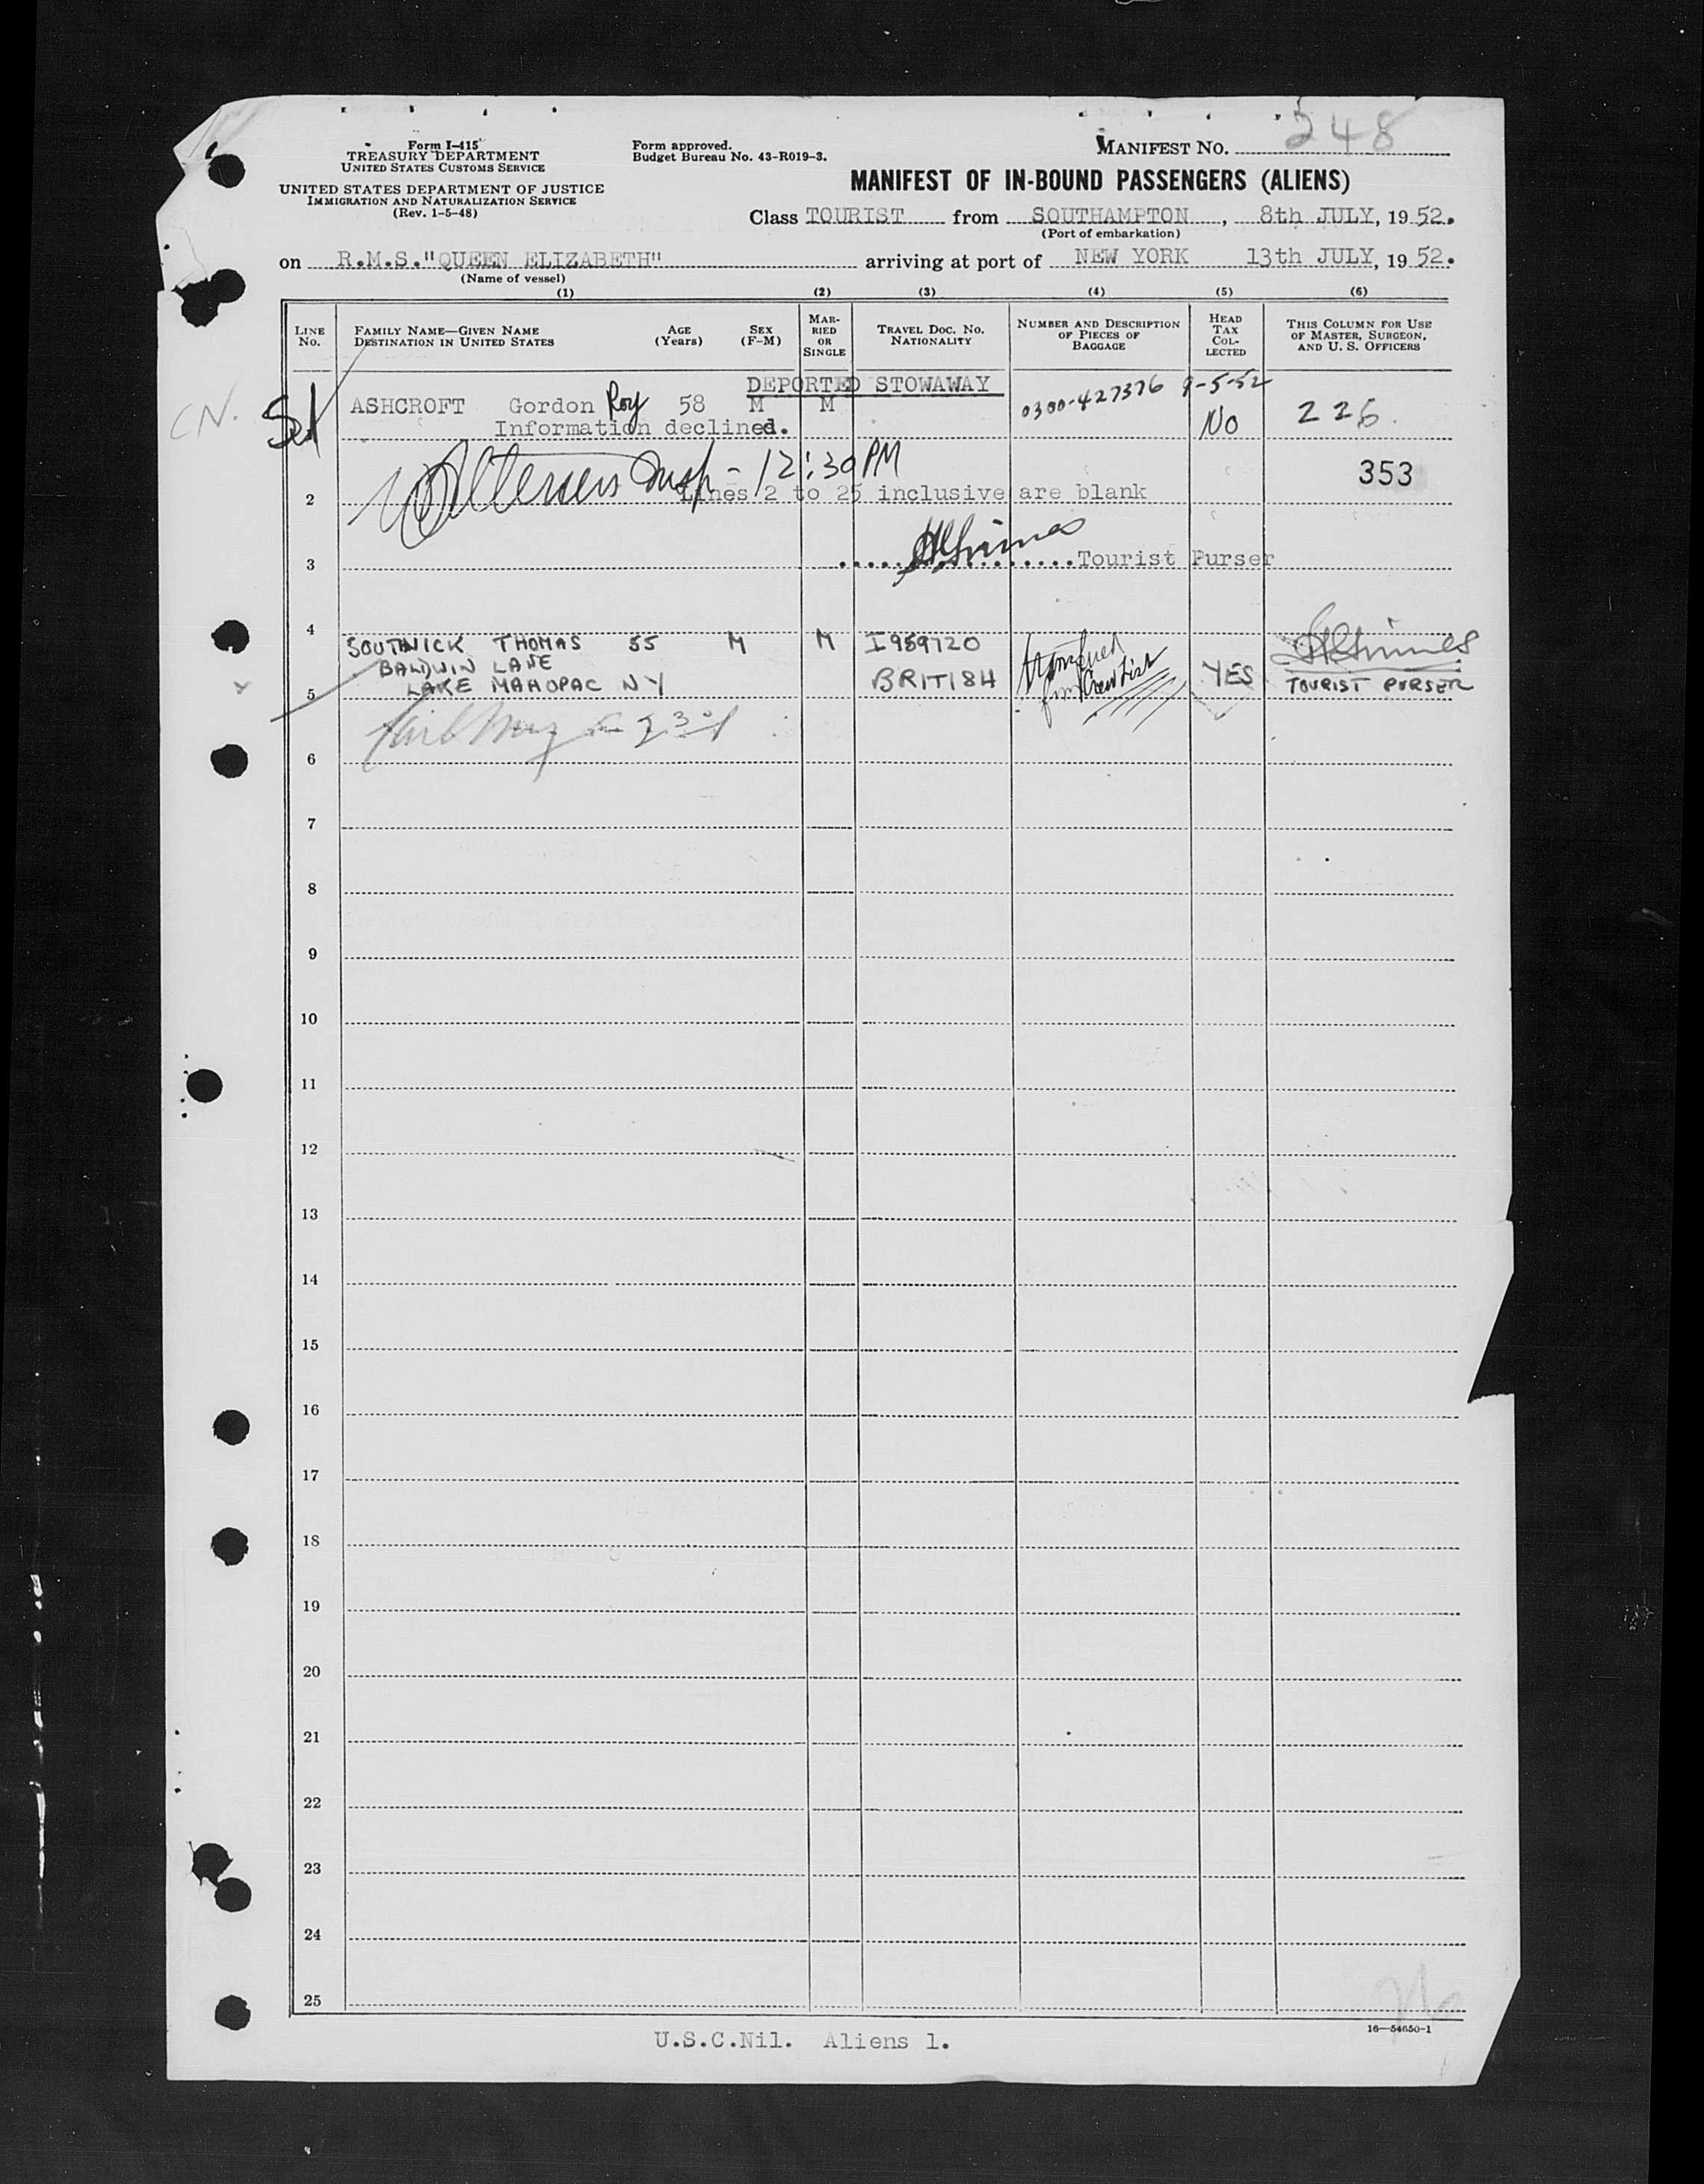 Form I-415
TREASURY DEPARTMENT
UNITED STATES CUSTOMS SERVICE
UNITED STATES DEPARTMENT OF JUSTICE
IMMIGRATION AND NATURALIZATION SERVICE
(Rev. 1-5-48)
Form approved.
Budget Bureau No. 43-R019-3.
MANIFEST NO. 248
MANIFEST OF IN-BOUND PASSENGERS (ALIENS)
Class TOURIST from SOUTHAMPTON, 8th JULY, 1952.
(Port of embarkation)
on R.M.S."QUEEN ELIZABETH" arriving at port of NEW YORK 13th JULY, 1952.
(Name of vessel)
(1) (2) (3) (4) (5) (6)
LINE No.
FAMILY NAME—GIVEN NAME
DESTINATION IN UNITED STATES
AGE (Years)
SEX (F-M)
MARRIED OR SINGLE
TRAVEL DOC. No. NATIONALITY
NUMBER AND DESCRIPTION OF PIECES OF BAGGAGE
HEAD TAX COLLECTED
THIS COLUMN FOR USE OF MASTER, SURGEON, AND U. S. OFFICERS
DEPORTED STOWAWAY 0300-427376 9-5-52
CN.
ASHCROFT Gordon Roy 58 M M No 226.
Information declined.
Insp - 12:30 PM 353
2 Lines 2 to 25 inclusive are blank
3 Tourist Purser
4
SOUTHWICK THOMAS 55 M M I959720
BALDWIN LANE
LAKE MAHOPAC NY BRITISH transferred from Crew List YES TOURIST PURSER
5
6
7
8
9
10
11
12
13
14
15
16
17
18
19
20
21
22
23
24
25
16—54650-1
U.S.C.Nil. Aliens 1.